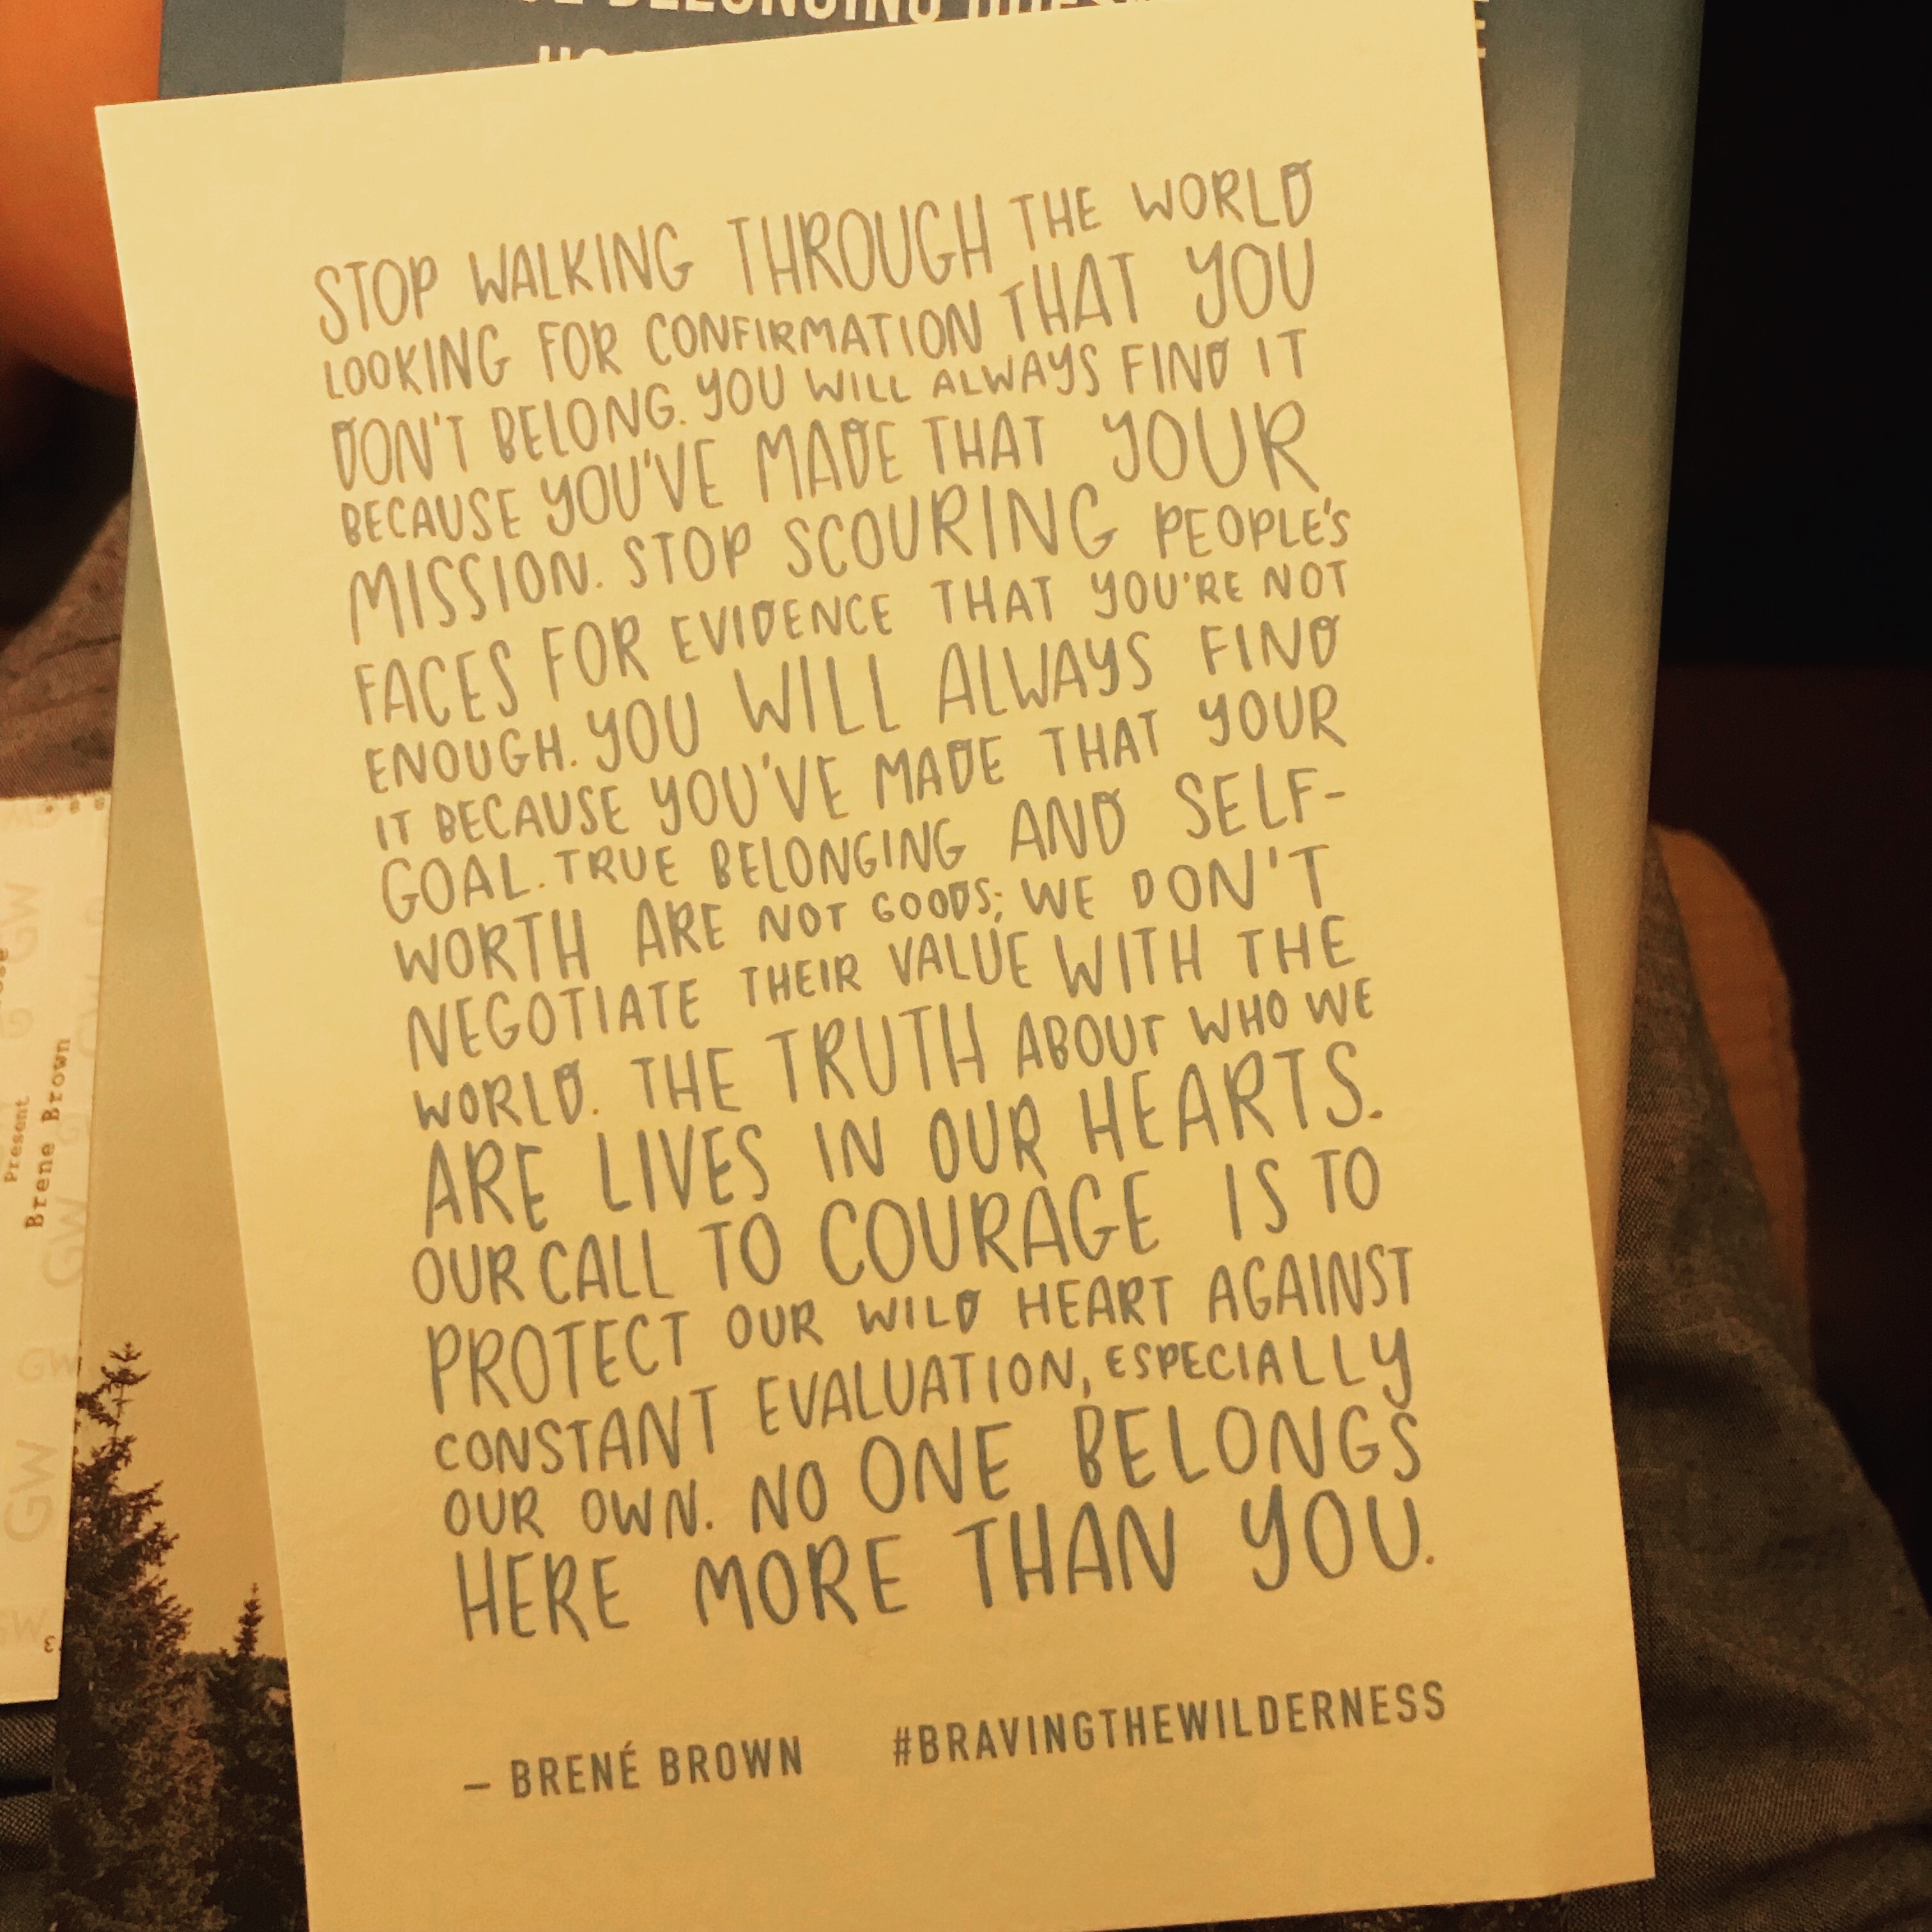 BELONGING
STOP WALKING THROUGH THE WORLD
LOOKING FOR CONFIRMATION THAT YOU
DON'T BELONG. YOU WILL ALWAYS FIND IT
BECAUSE YOU'VE MADE THAT YOUR
MISSION. STOP SCOURING PEOPLE'S
FACES FOR EVIDENCE THAT YOU'RE NOT
ENOUGH. YOU WILL ALWAYS FIND
IT BECAUSE YOU'VE MADE THAT YOUR
GOAL. TRUE BELONGING AND SELF-
WORTH ARE NOT GOODS; WE DON'T
NEGOTIATE THEIR VALUE WITH THE
WORLD. THE TRUTH ABOUT WHO WE
ARE LIVES IN OUR HEARTS.
OUR CALL TO COURAGE IS TO
PROTECT OUR WILD HEART AGAINST
CONSTANT EVALUATION, ESPECIALLY
OUR OWN. NO ONE BELONGS
HERE MORE THAN YOU.
– BRENÉ BROWN #BRAVINGTHEWILDERNESS
Present
Brene Brown
GW
GW
GW
GW